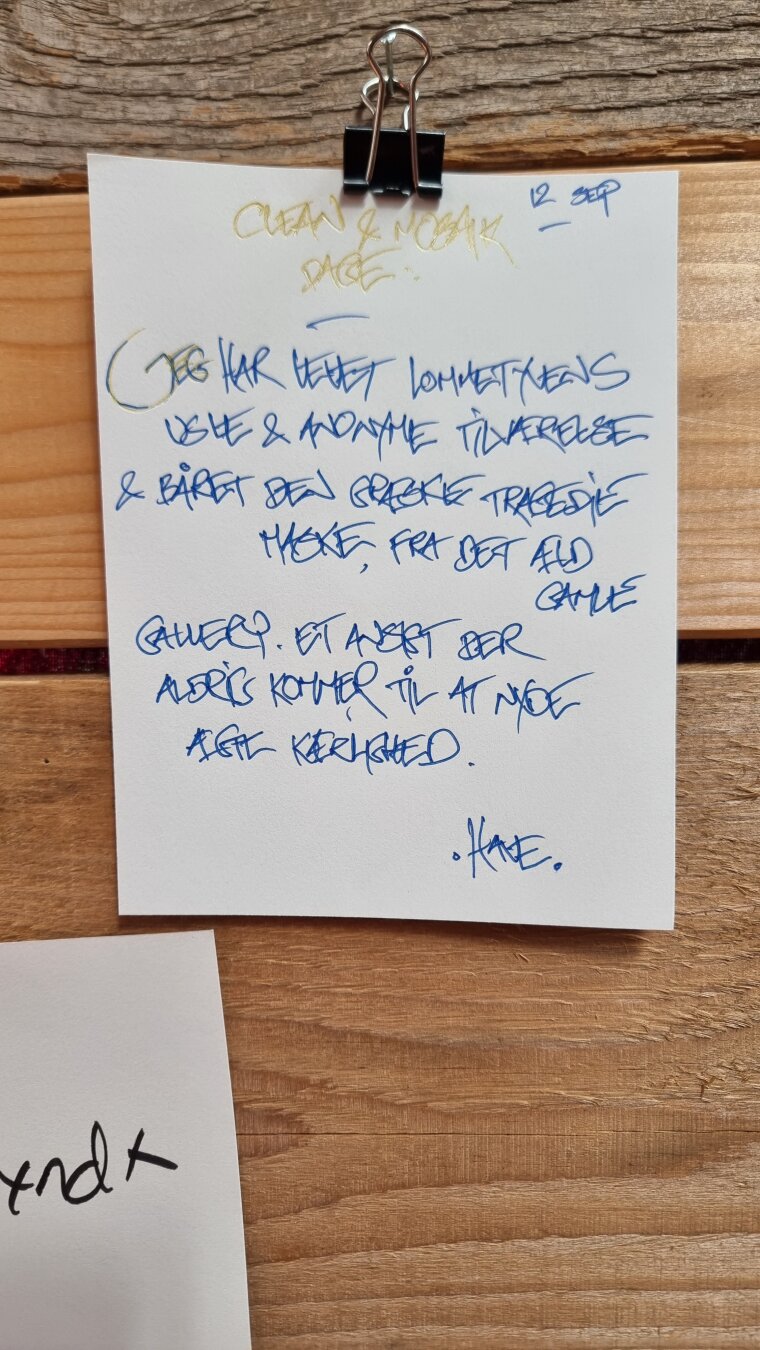 12 SEP
CLEAN & MOSAIK
DAGE.
JEG HAR LEVET LOMMETYVENS
USLE & ANONYME TILVÆRELSE
& BÅRET DEN GRÆSKE TRAGEDIE
MASKE, FRA DET ÆLD
GAMLE
GALLERY. ET ANSIGT DER
ALDRIG KOMMER TIL AT NYDE
ÆGTE KÆRLIGHED.